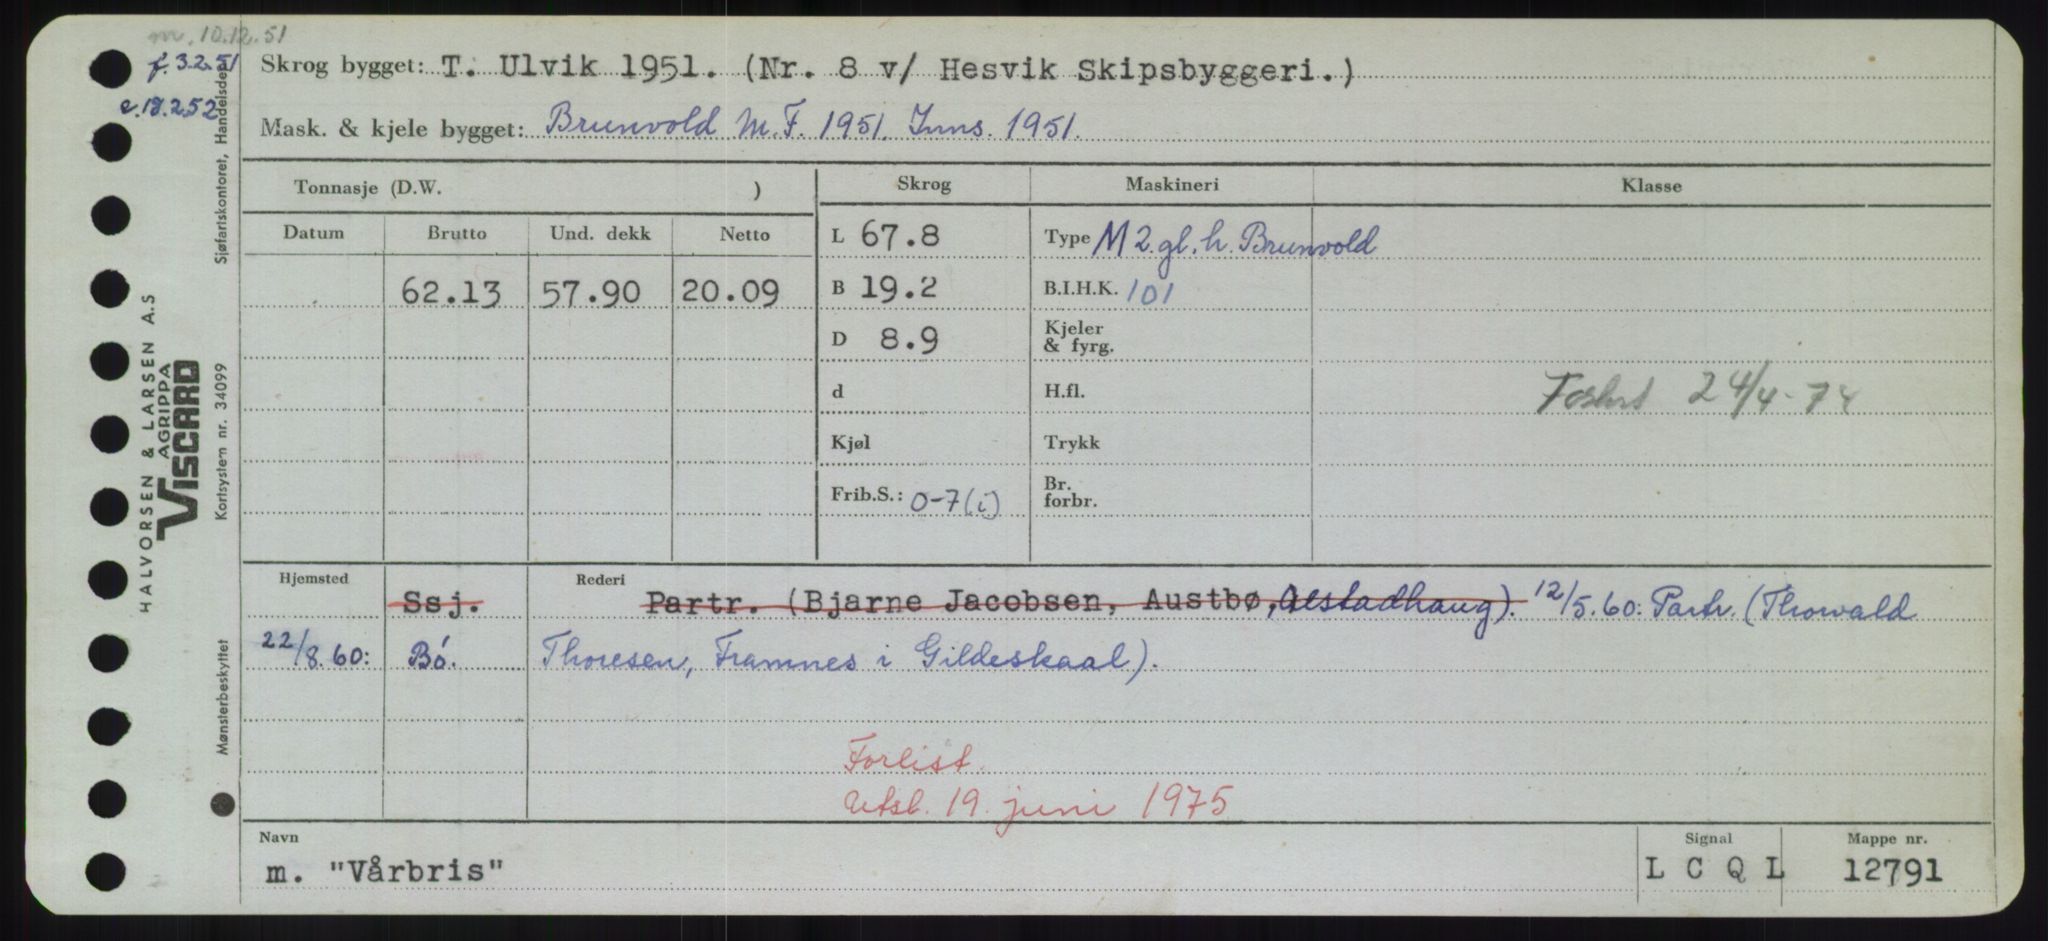 m. 10.12.51
f. 3.2.51
e. 18.2.52
Skrog bygget: T. Ulvik 1951. (Nr. 8 v/ Hesvik Skipsbyggeri.)
Mask. & kjele bygget: Brunvold M.F. 1951. Inns. 1951.
Tonnasje (D.W. )
Skrog
Maskineri
Klasse
Datum
Brutto
Und. dekk
Netto
62.13
57.90
20.09
L 67.8
B 19.2
D 8.9
d
Kjøl
Frib.S.: 0-7(i)
Type M 2.gl.h. Brunvold
B.I.H.K. 101
Kjeler
& fyrg.
H.fl.
Trykk
Br.
forbr.
24/4-74
Hjemsted
Rederi
Ssj. Partr. (Bjarne Jacobsen, Austbø, Alstadhaug). 12/5.60: Partr. (Thorvald
22/8.60: Bó. Thoresen, Framnes i Gildeskaal).
Forlist.
Utsl. 19. juni 1975
Navn
m. "Vårbris"
Signal
L C Q L
Mappe nr.
12791
HALVORSEN & LARSEN A.S
AGRIPPA
VISCARD
Sjøfartskontoret, Handelsdep
Kortsystem nr. 34099
Mønsterbeskyttet